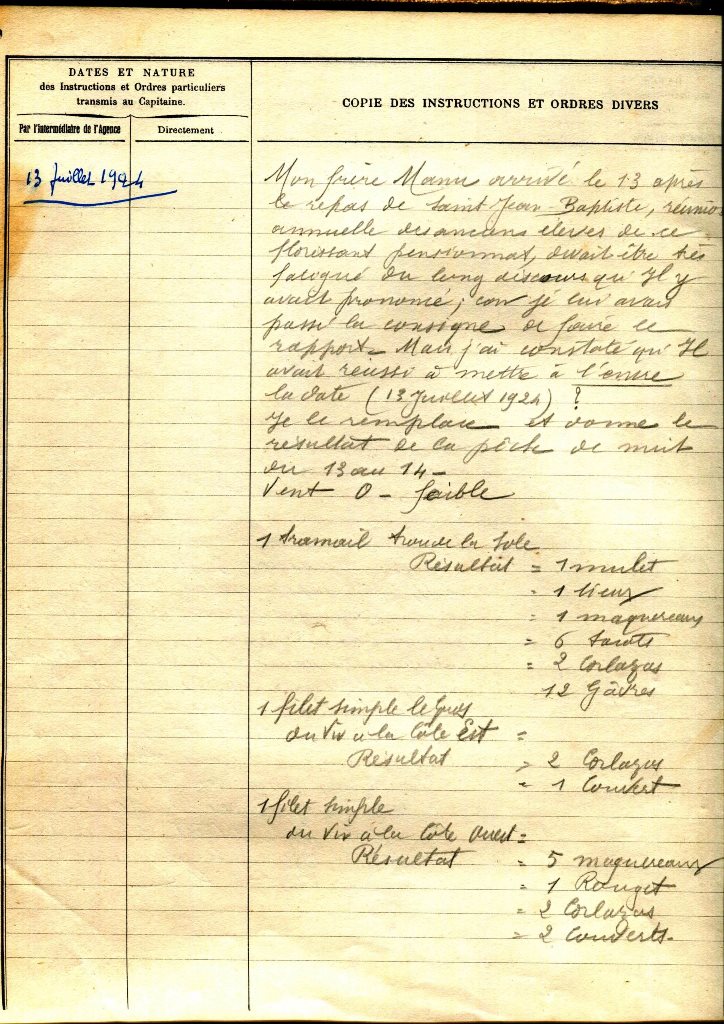 DATES ET NATURE
des Instructions et Ordres particuliers
transmis au Capitaine.
Par l'intermédiaire de l'Agence
Directement
COPIE DES INSTRUCTIONS ET ORDRES DIVERS
13 Juillet 1924
Mon frère Manu arrivé le 13 après
le repas de Saint Jean-Baptiste, réunion
annuelle des anciens élèves de ce
florissant pensionnat, devait être très
fatigué du long discours qu'Il y
avait prononcé, car je lui avais
passé la consigne de faire le
rapport. Mais j'ai constaté qu'Il
avait réussi à mettre à l'encre
la date (13 Juillet 1924) ?
Je le remplace et donne le
résultat de la pêche de nuit
du 13 au 14 -
Vent O - faible
1 tramail trou de la Sole
Résultat = 1 mulet
= 1 lieux
= 1 maquereaux
= 6
= 2 Corlazos
12 Gâdres
1 filet simple
du Viv à la Côte Est =
Résultat = 2 Corlazos
= 1 Couvert
1 filet simple
du Viv à la Côte Ouest =
Résultat = 5 maquereaux
= 1 Rouget
= 2 Corlazos
= 2 Couverts.